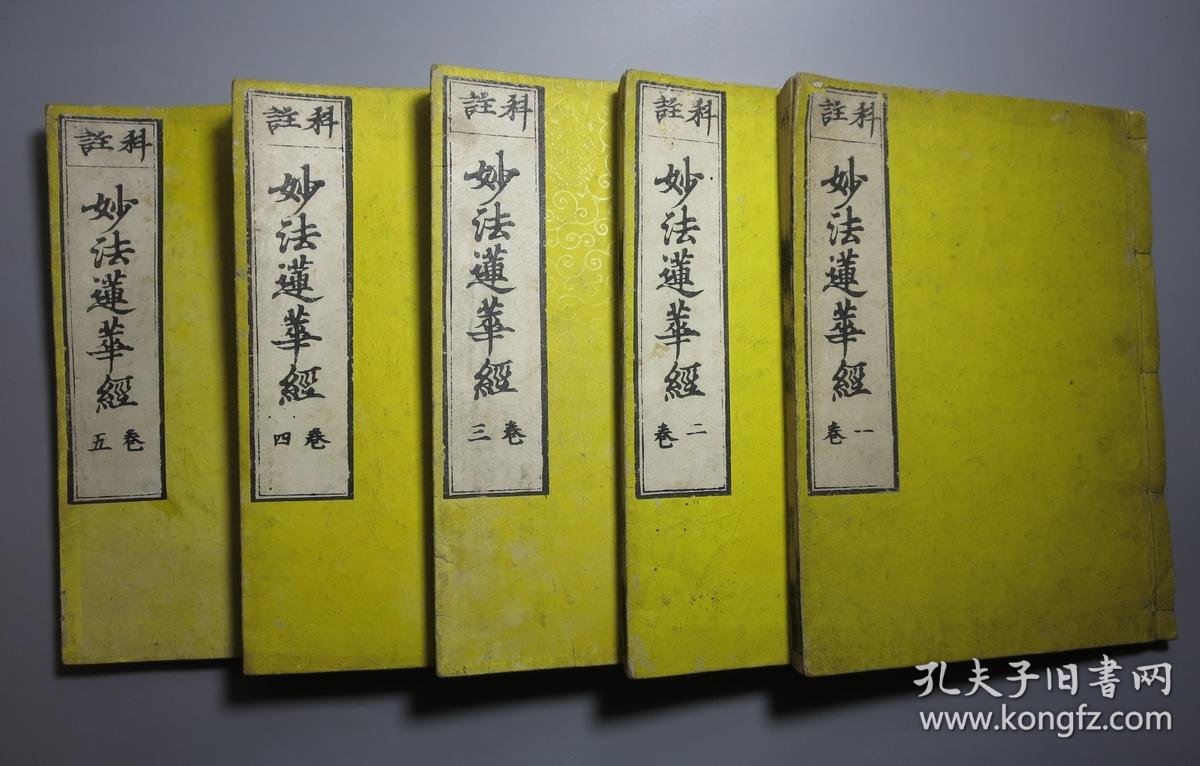 科註
妙法蓮華經
一卷
科註
妙法蓮華經
二卷
科註
妙法蓮華經
卷三
科註
妙法蓮華經
卷四
科註
妙法蓮華經
卷五
孔夫子旧書网
www.kongfz.com